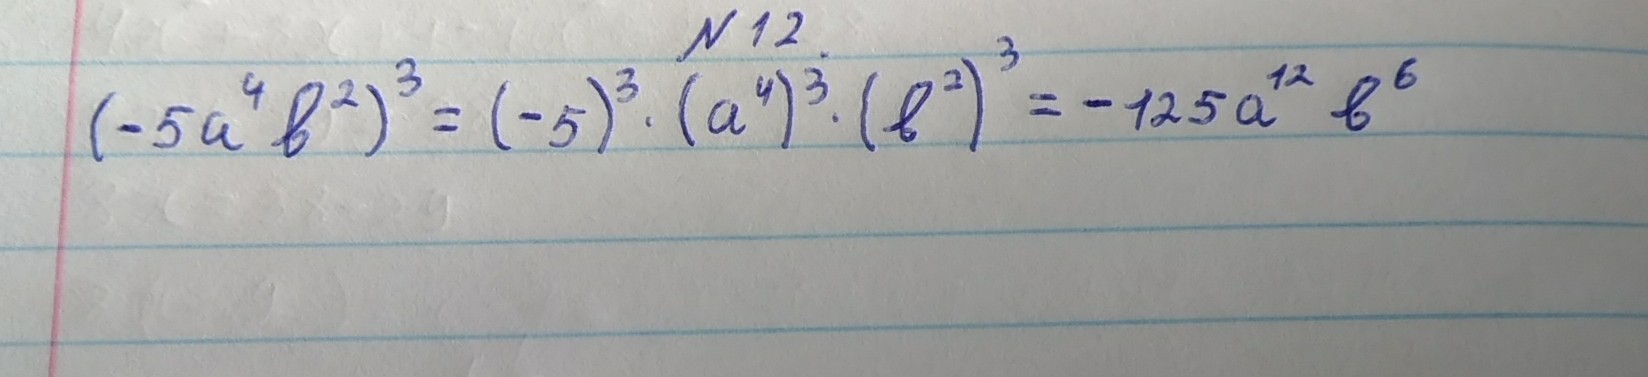 N 12.
(-5a⁴b²)³ = (-5)³ · (a⁴)³ · (b²)³ = -125a¹² b⁶